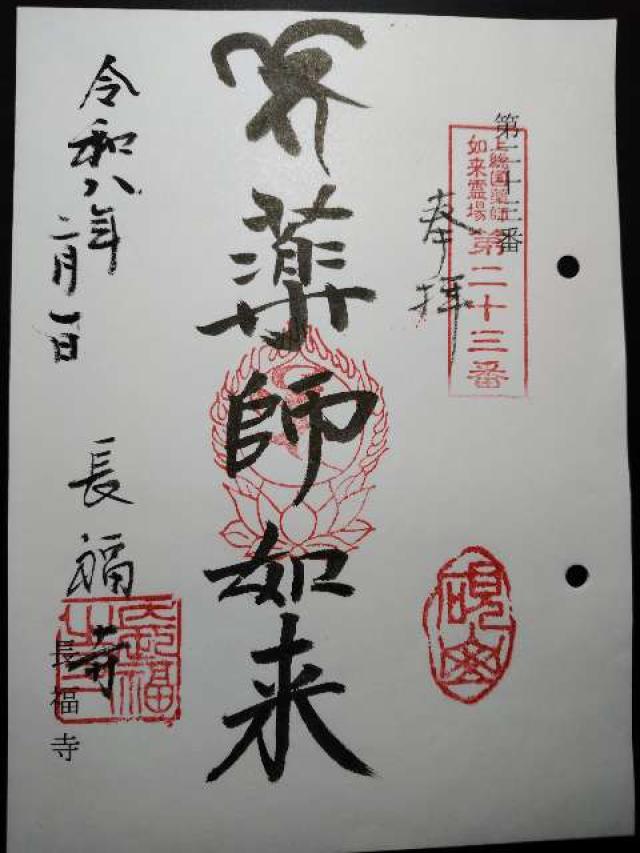 第二十三番
上総国薬師
如来霊場
第二十三番
奉拝
薬師如来
令和八年
二月一日
長福寺
長福寺